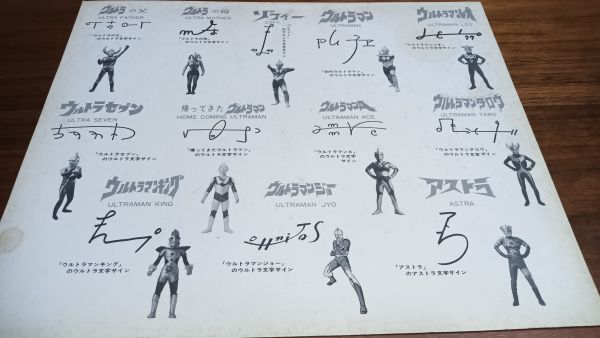 ウルトラの父
ULTRA FATHER
「ウルトラの父」
のウルトラ文字サイン
ウルトラの母
ULTRA MOTHER
「ウルトラの母」
のウルトラ文字サイン
ゾフィー
「ゾフィー」
のウルトラ文字サイン
ウルトラマン
ULTRAMAN
「初代ウルトラマン」
のウルトラ文字サイン
ウルトラマンレオ
ULTRAMAN LEO
「ウルトラマンレオ」
のウルトラ文字サイン
ウルトラセブン
ULTRA SEVEN
「ウルトラセブン」
のウルトラ文字サイン
帰ってきたウルトラマン
HOME COMING ULTRAMAN
「帰ってきたウルトラマン」
のウルトラ文字サイン
ウルトラマンA
ULTRAMAN ACE
「ウルトラマンA」
のウルトラ文字
サイン
ウルトラマンタロウ
ULTRAMAN TARO
「ウルトラマンタロウ」
のウルトラ文字サイン
ウルトラマンキング
ULTRAMAN KING
「ウルトラマンキング」
のウルトラ文字サイン
ウルトラマンジョー
ULTRAMAN JYO
「ウルトラマンジョー」
のウルトラ文字サイン
アストラ
ASTRA
「アストラ」
のアストラ文字サイン